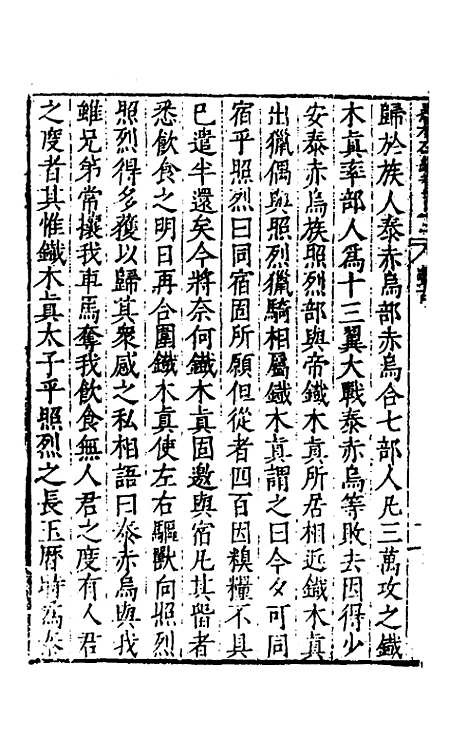 歸於族人泰赤烏部赤烏合七部人凡三萬攻之鐵
木真率部人爲十三翼大戰泰赤烏等敗去因得少
安泰赤烏族照烈部與帝鐵木真所居相近鐵木真
出獵偶與照烈獵騎相屬鐵木真謂之曰今夕可同
宿乎照烈曰同宿固所願但從者四百因糗糧不具
已遣半還矣今將奈何鐵木真固邀與宿凡其留者
悉飲食之明日再合圍鐵木真使左右驅獸向照烈
照烈得多獲以歸其衆感之私相語曰泰赤烏與我
雖兄弟常攘我車馬奪我飲食無人君之度有人君
之度者其惟鐵木真太子乎照烈之長玉曆時爲泰